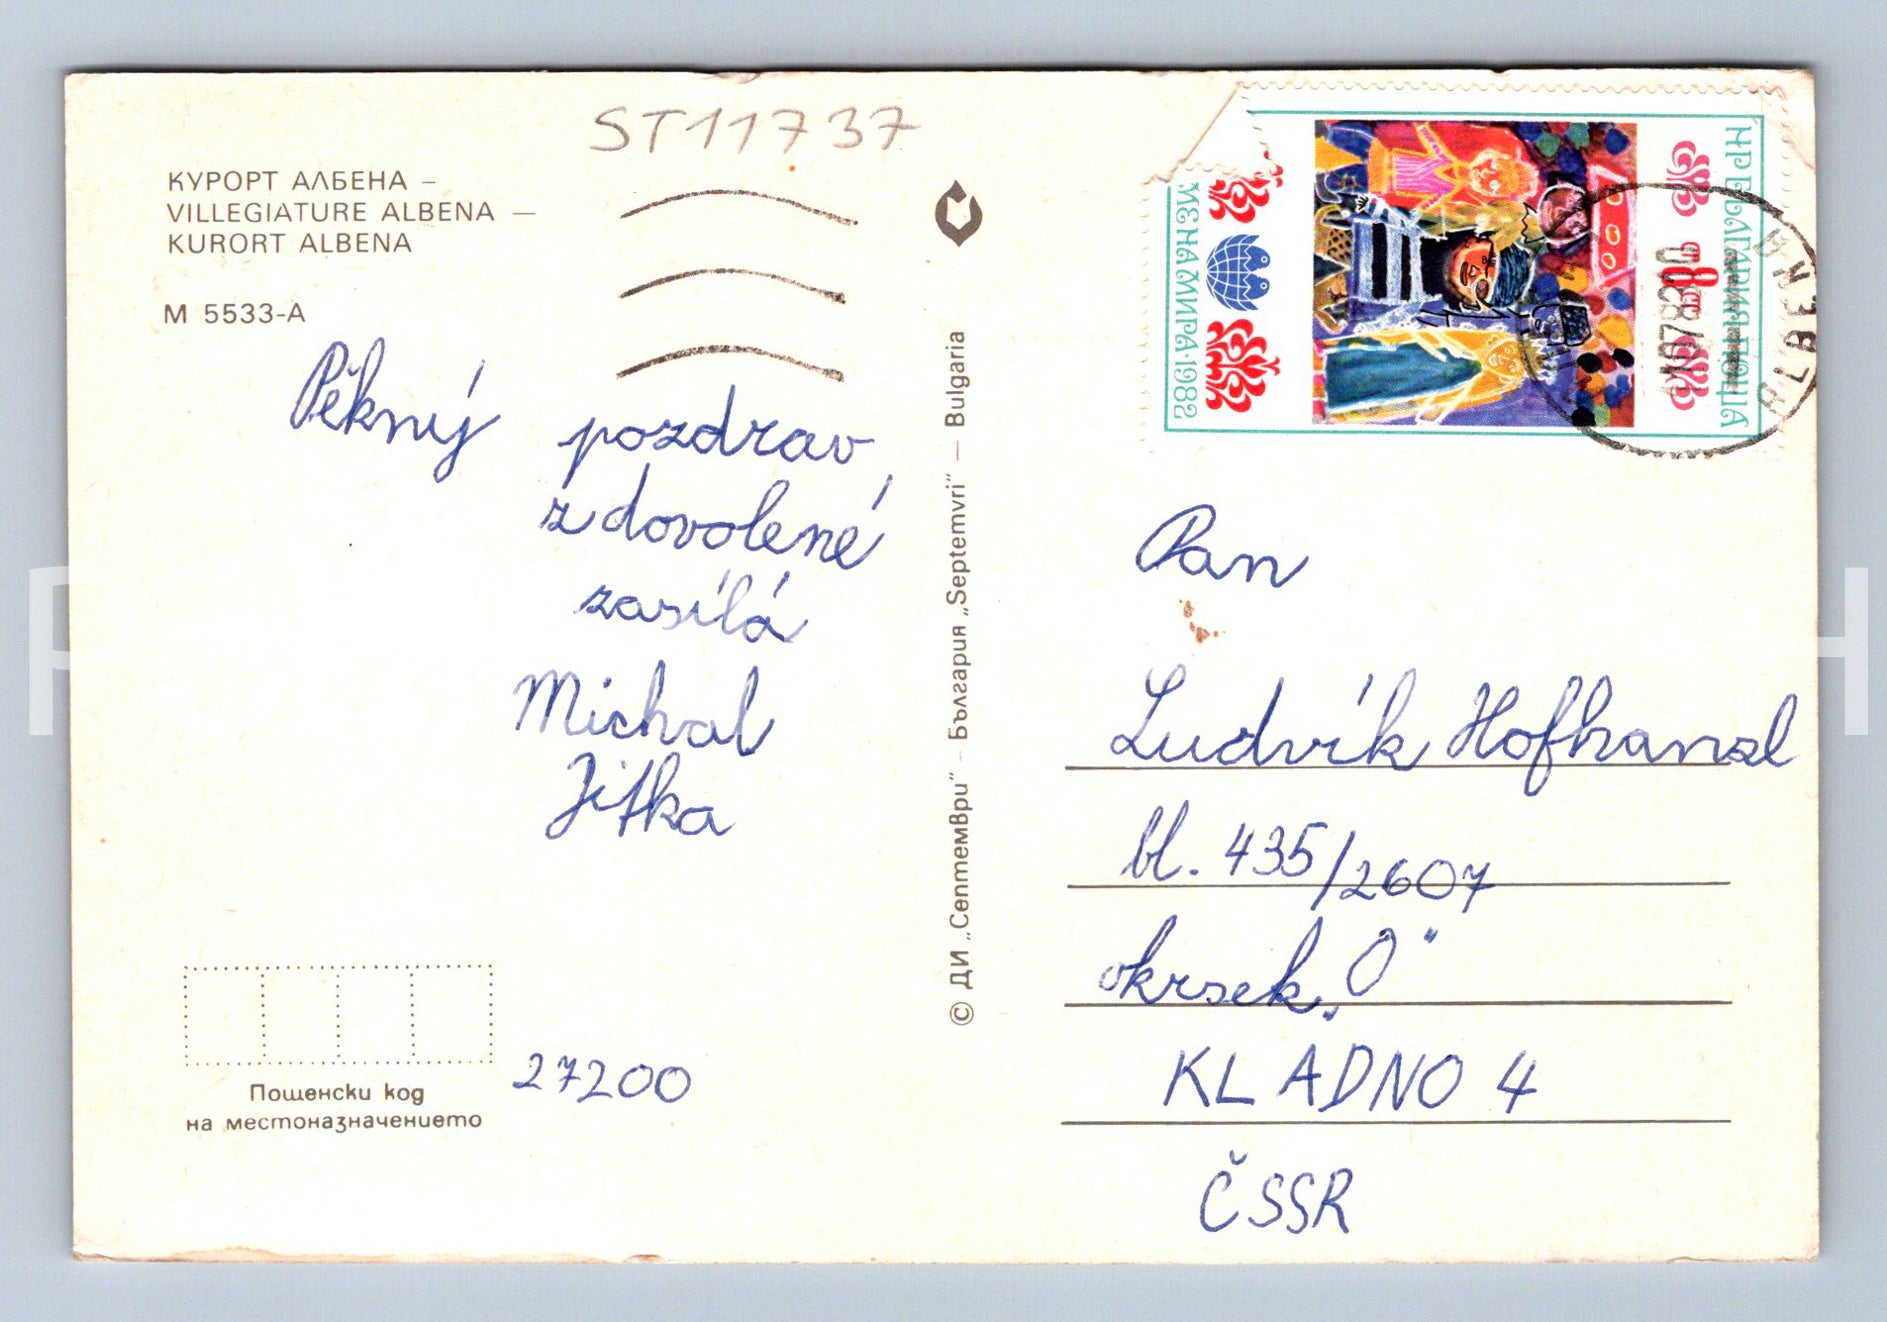 ST11737
КУРОРТ АЛБЕНА –
VILLEGIATURE ALBENA –
KURORT ALBENA
М 5533-А
Pěkný pozdrav
z dovolené
zasílá
Michal
Jitka
Пощенски код
на местоназначението
27200
© ДИ „Септември“ – България „Septemvri“ – Bulgaria
НР БЪЛГАРИЯ·ПОЩА
8
МЕ НА МИРА·1982
ALBENA
Pan
Ludvík Hofhanzl
bl. 435/2607
okrsek „O“
KLADNO 4
ČSSR